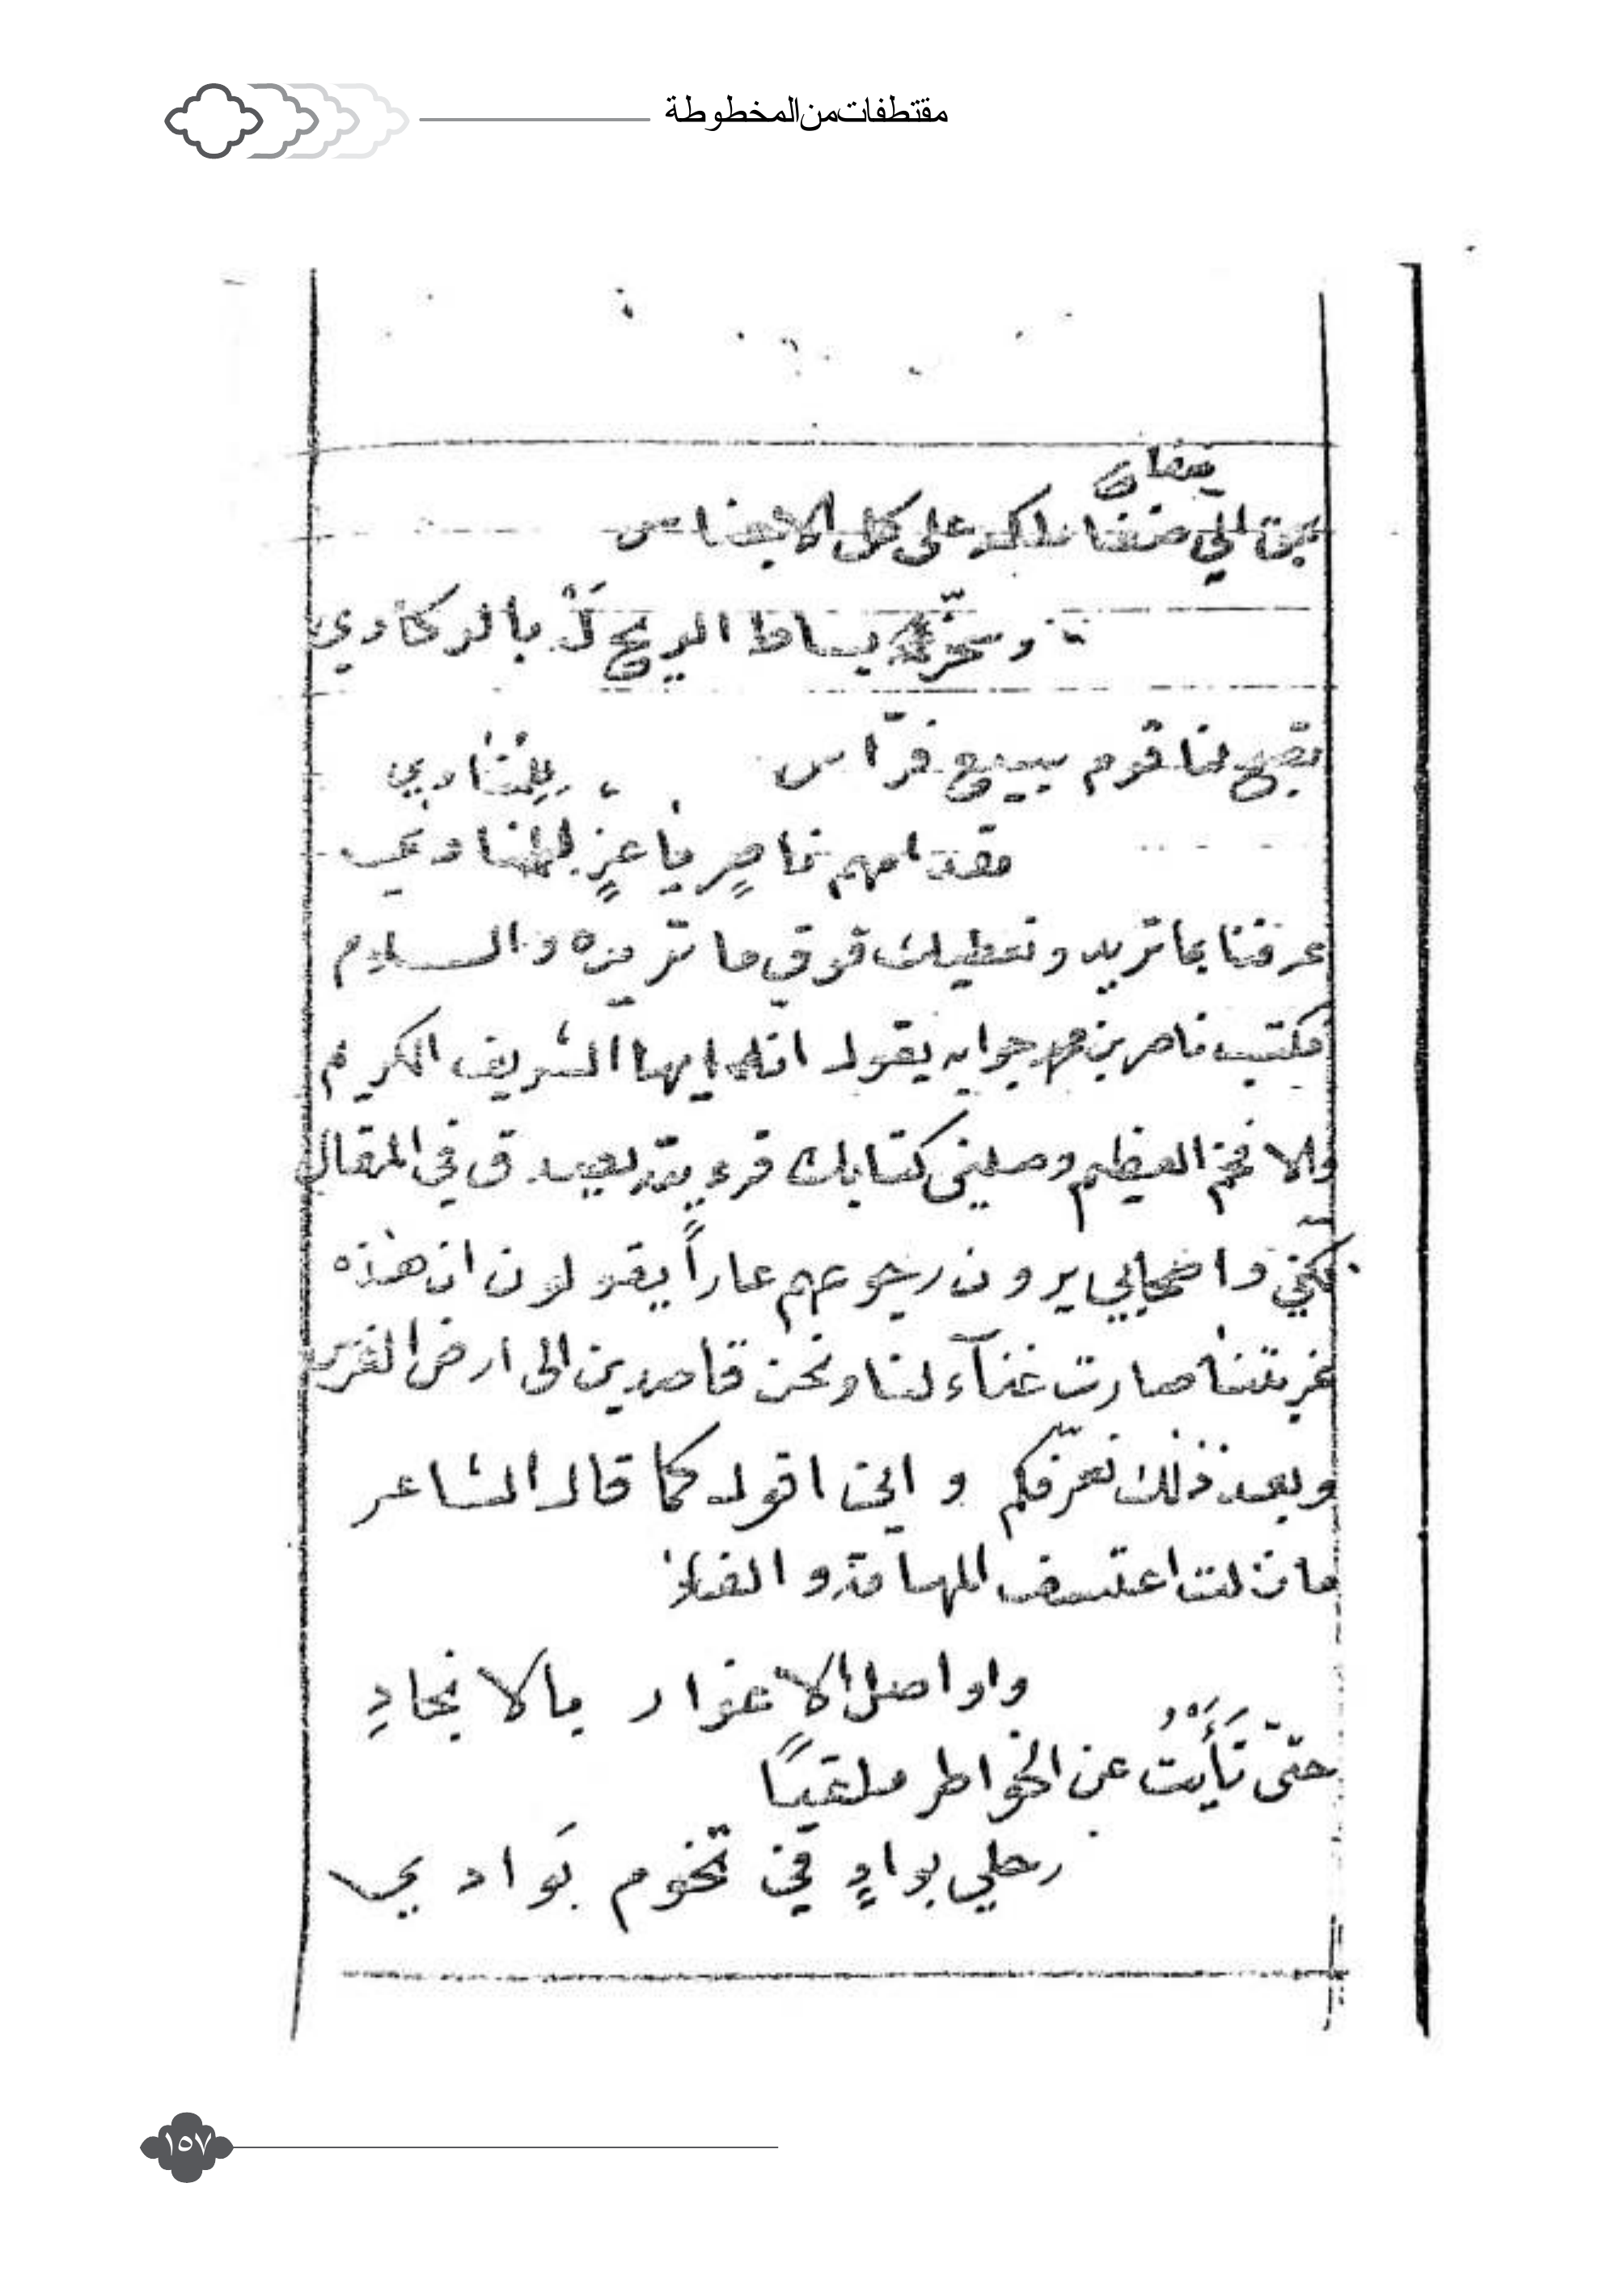 مقتطفات من المخطوطة
بحق الي ملكه على كل الاجناس
بساط الريح لَهْ بالركادي
تصبح لنا قوم سبيع فرّاس
للمنادي
مقدامهم ناصرٍ يا عزٍ للمنادي
عرفنا بما تريد ونعطيك فوق ما تريده والسلام
فكتب ناصر بن جوابه يقول انك ايها الشريف الكريم
والافخم العظيم وصلني كتابك في المقال
لكني واصحابي يرون رجوعهم عاراً يقولون ان هذه
غربتنا صارت غنآء لنا ونحن قاصدين الى ارض
وبعد ذلك نعرّفكم واني اقول كما قال الشاعر
ما زلت اعتسف المهامة والفلا
واواصل الاغوار بالانجادِ
حتّى نَأَيْتُ عن الخواطر ملقيًا
رحلي بوادٍ في تخوم بَوادي
١٥٧